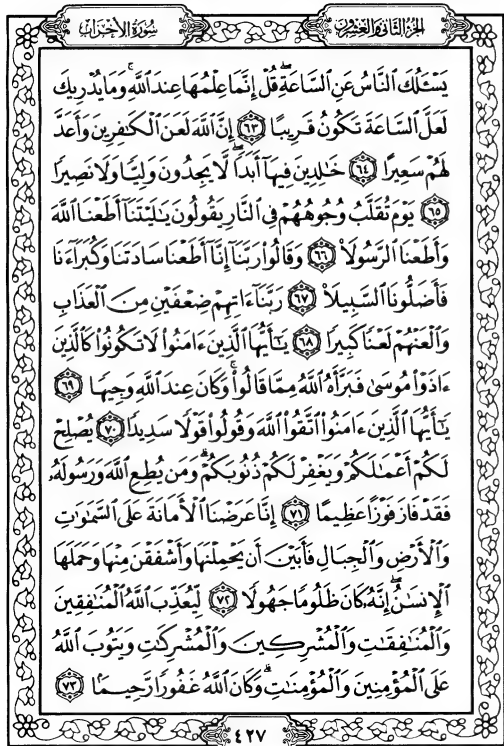 الجزء الثاني والعشرون
سُورَةُ الأَحْزَاب
يَسْـَٔلُكَ ٱلنَّاسُ عَنِ ٱلسَّاعَةِۖ قُلْ إِنَّمَا عِلْمُهَا عِندَ ٱللَّهِۚ وَمَا يُدْرِيكَ
لَعَلَّ ٱلسَّاعَةَ تَكُونُ قَرِيبًا ٦٣ إِنَّ ٱللَّهَ لَعَنَ ٱلْكَٰفِرِينَ وَأَعَدَّ
لَهُمْ سَعِيرًا ٦٤ خَٰلِدِينَ فِيهَآ أَبَدًاۖ لَّا يَجِدُونَ وَلِيًّا وَلَا نَصِيرًا
٦٥ يَوْمَ تُقَلَّبُ وُجُوهُهُمْ فِى ٱلنَّارِ يَقُولُونَ يَٰلَيْتَنَآ أَطَعْنَا ٱللَّهَ
وَأَطَعْنَا ٱلرَّسُولَا۠ ٦٦ وَقَالُوا۟ رَبَّنَآ إِنَّآ أَطَعْنَا سَادَتَنَا وَكُبَرَآءَنَا
فَأَضَلُّونَا ٱلسَّبِيلَا۠ ٦٧ رَبَّنَآ ءَاتِهِمْ ضِعْفَيْنِ مِنَ ٱلْعَذَابِ
وَٱلْعَنْهُمْ لَعْنًا كَبِيرًا ٦٨ يَٰٓأَيُّهَا ٱلَّذِينَ ءَامَنُوا۟ لَا تَكُونُوا۟ كَٱلَّذِينَ
ءَاذَوْا۟ مُوسَىٰ فَبَرَّأَهُ ٱللَّهُ مِمَّا قَالُوا۟ۚ وَكَانَ عِندَ ٱللَّهِ وَجِيهًا ٦٩
يَٰٓأَيُّهَا ٱلَّذِينَ ءَامَنُوا۟ ٱتَّقُوا۟ ٱللَّهَ وَقُولُوا۟ قَوْلًا سَدِيدًا ٧٠ يُصْلِحْ
لَكُمْ أَعْمَٰلَكُمْ وَيَغْفِرْ لَكُمْ ذُنُوبَكُمْۗ وَمَن يُطِعِ ٱللَّهَ وَرَسُولَهُۥ
فَقَدْ فَازَ فَوْزًا عَظِيمًا ٧١ إِنَّا عَرَضْنَا ٱلْأَمَانَةَ عَلَى ٱلسَّمَٰوَٰتِ
وَٱلْأَرْضِ وَٱلْجِبَالِ فَأَبَيْنَ أَن يَحْمِلْنَهَا وَأَشْفَقْنَ مِنْهَا وَحَمَلَهَا
ٱلْإِنسَٰنُۖ إِنَّهُۥ كَانَ ظَلُومًا جَهُولًا ٧٢ لِّيُعَذِّبَ ٱللَّهُ ٱلْمُنَٰفِقِينَ
وَٱلْمُنَٰفِقَٰتِ وَٱلْمُشْرِكِينَ وَٱلْمُشْرِكَٰتِ وَيَتُوبَ ٱللَّهُ
عَلَى ٱلْمُؤْمِنِينَ وَٱلْمُؤْمِنَٰتِۗ وَكَانَ ٱللَّهُ غَفُورًا رَّحِيمًا ٧٣
٤٢٧